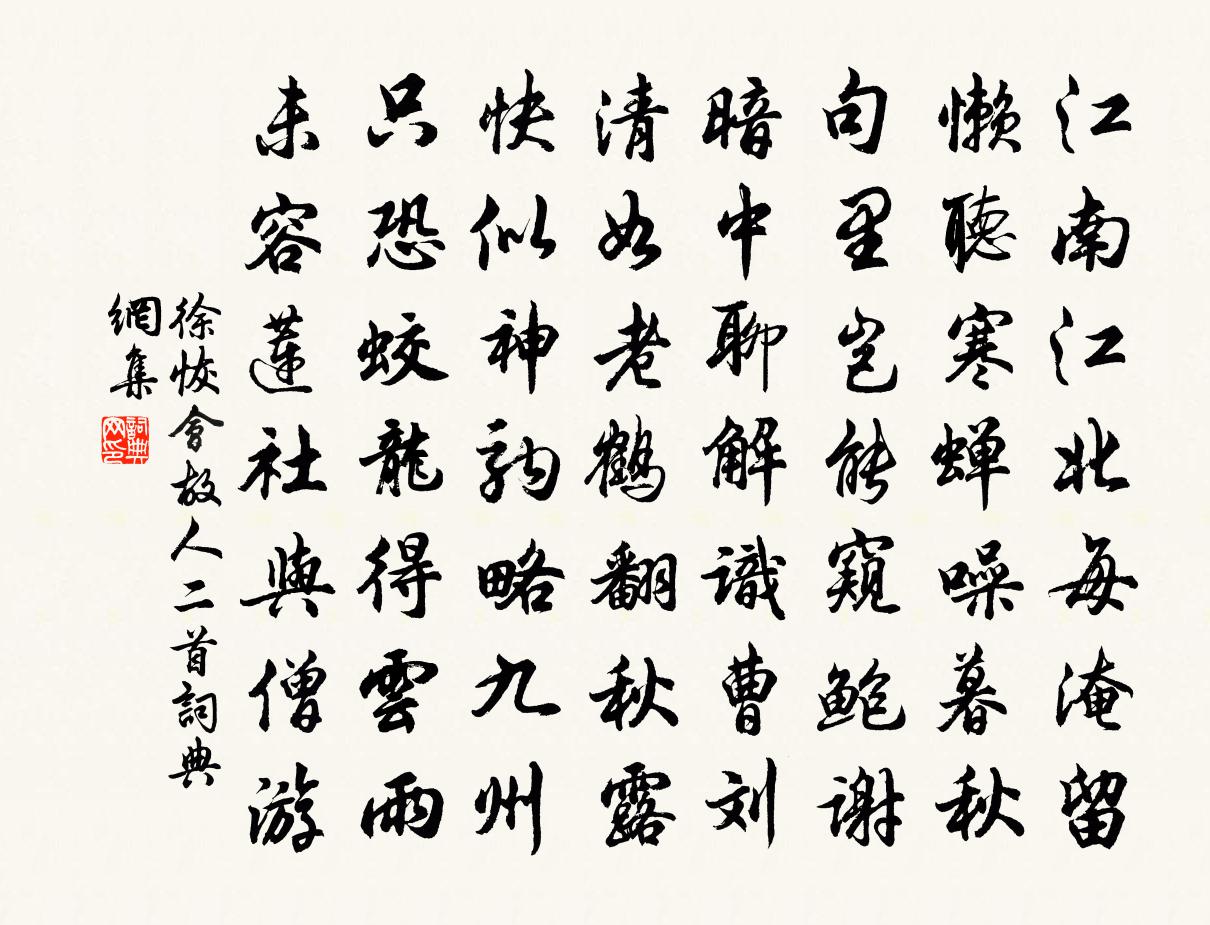 江南江北每淹留
懶聽寒蟬噪暮秋
句里豈能窺鮑謝
暗中聊解識曹刘
清如老鶴翻秋露
快似神駒略九州
只恐蛟龍得雲雨
未容蓮社與僧游
徐恢會故人二首詞典
網集
詞典網印